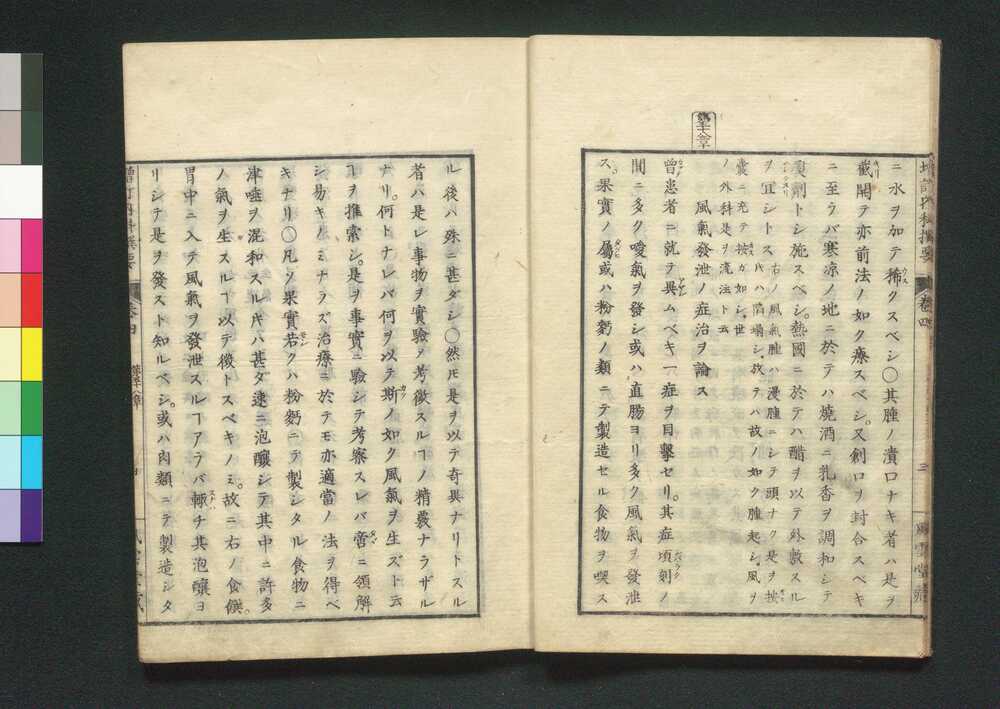 增訂内科撰要
卷四
三
ニ水ヲ加テ稀クスベシ〇其腫ノ潰口ナキ者ハ是ヲ
截開テ亦前法ノ如ク療スベシ。又創口ヲ封合スベキ
ニ至ラバ寒凉ノ地ニ於テハ燒酒ニ乳香ヲ調和シテ
製劑トシ施スベシ。熱國ニ於テハ醋ヲ以テ外敷スル
ヲ宜シトス
右ノ風氣腫ハ漫腫ニシテ頭ナク是ヲ按
氏ハ陷塌シ、放テハ故ノ如ク腫起シ、風ヲ
嚢ニ充テ按ガ如シ、世
ノ外科是ヲ流注ト云
第十六章
風氣發泄ノ症治ヲ論ス
曽患者ニ就テ異ムベキ一症ヲ目擊セリ。其症頃刻ノ
間ニ多ク噯氣ヲ發シ或ハ直腸ヨリ多ク風氣ヲ發泄
ス。果實ノ屬或ハ粉麪ノ類ニテ製造セル食物ヲ喫ス
ル後ハ殊ニ甚ダシ〇然𪜈是ヲ以テ奇異ナリトスル
者ハ是レ事物ヲ實驗シ考徴スルヿノ精覈ナラザル
ナリ。何トナレバ何ヲ以テ斯ノ如ク風氣ヲ生ズト云
ヿヲ推索シ。是ヲ事實ニ驗シテ考察スレバ啻ニ領解
シ易キノミナラズ治療ニ於テモ亦適當ノ法ヲ得ベ
キナリ〇凡ソ果實若クハ粉麪ニテ製シタル食物ニ
津唾ヲ混和スル𪜈ハ甚ダ速ニ泡釀シテ其中ニ許多
ノ氣ヲ生スルヿ以テ徴トスベキノミ。故ニ右ノ食饌。
胃中ニ入テ風氣ヲ發泄スルヿアラバ輙チ其泡釀ヨ
リシテ是ヲ發スト知ルベシ。或ハ肉類ニテ製造シタ
卷四